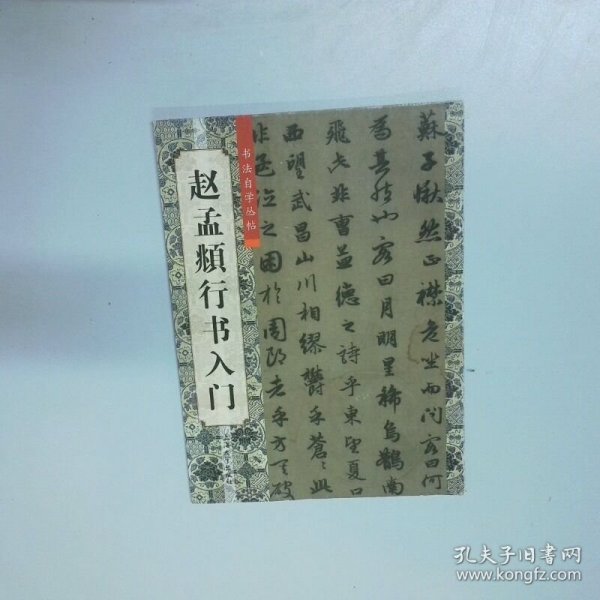 书法自学丛帖
赵孟頫行书入门
蘇子愀然正襟危坐而問客曰何
為其然也客曰月明星稀烏鵲南
飛此非曹孟德之詩乎東望夏口
西望武昌山川相繆鬱乎蒼〻此
非孟德之困於周郎者乎方其破
孔夫子旧书网
www.kongfz.com